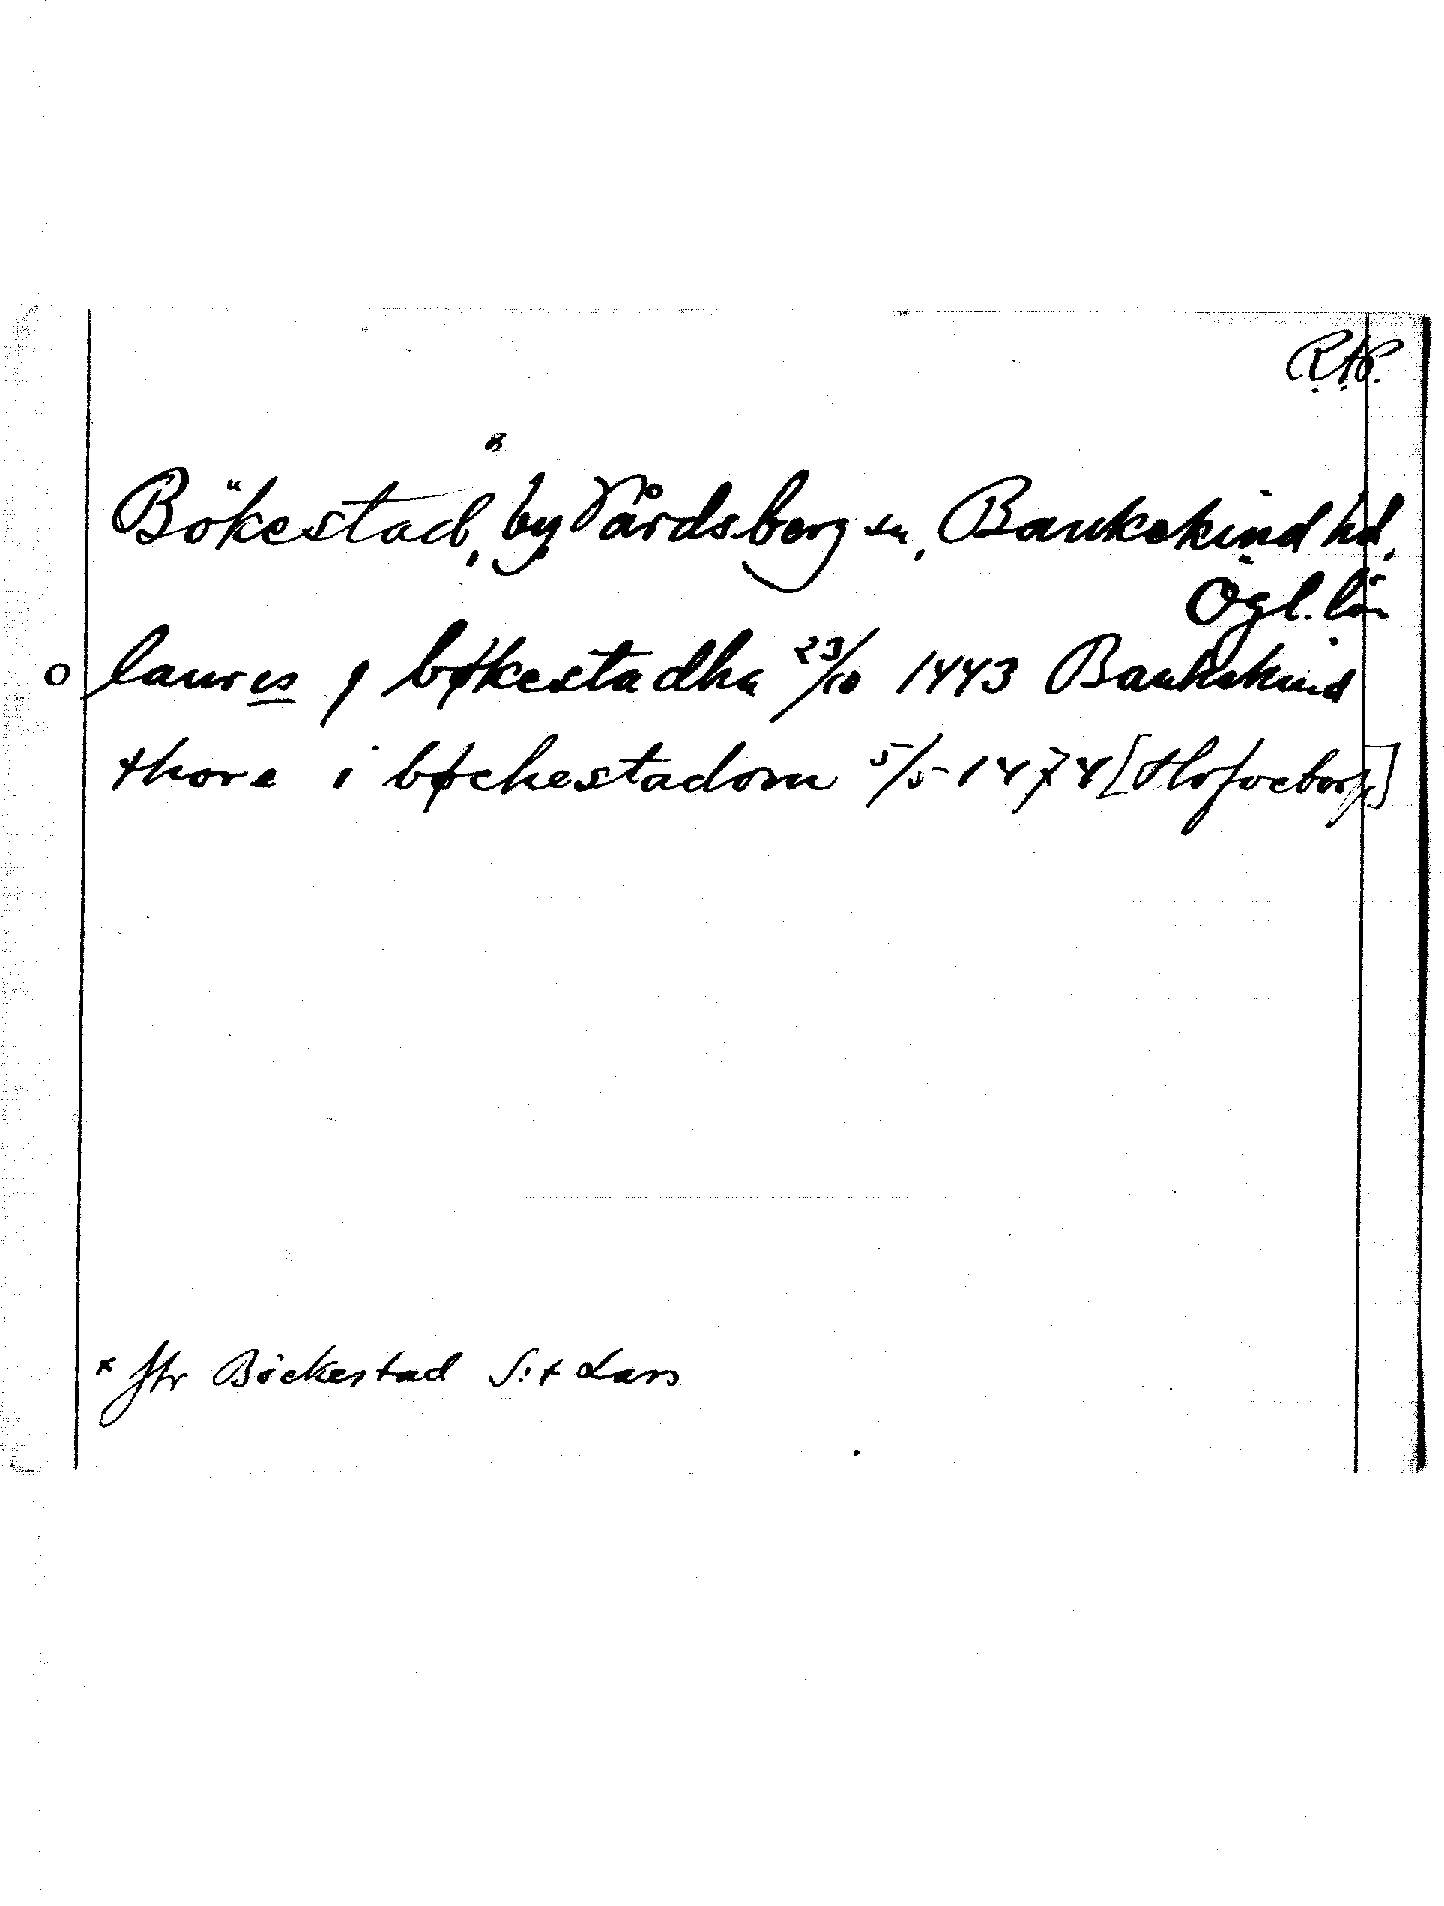 R.A.P.
Bökestad,* by, Vårdsberg sn, Bankekind hd,
Ögl. län
o laurɩs j bøkestadha 23/10 1443 Bankekind
thore i bøchestadom 5/5 1474 [Hofveborg]
* JfrBöckestad S:t Lars